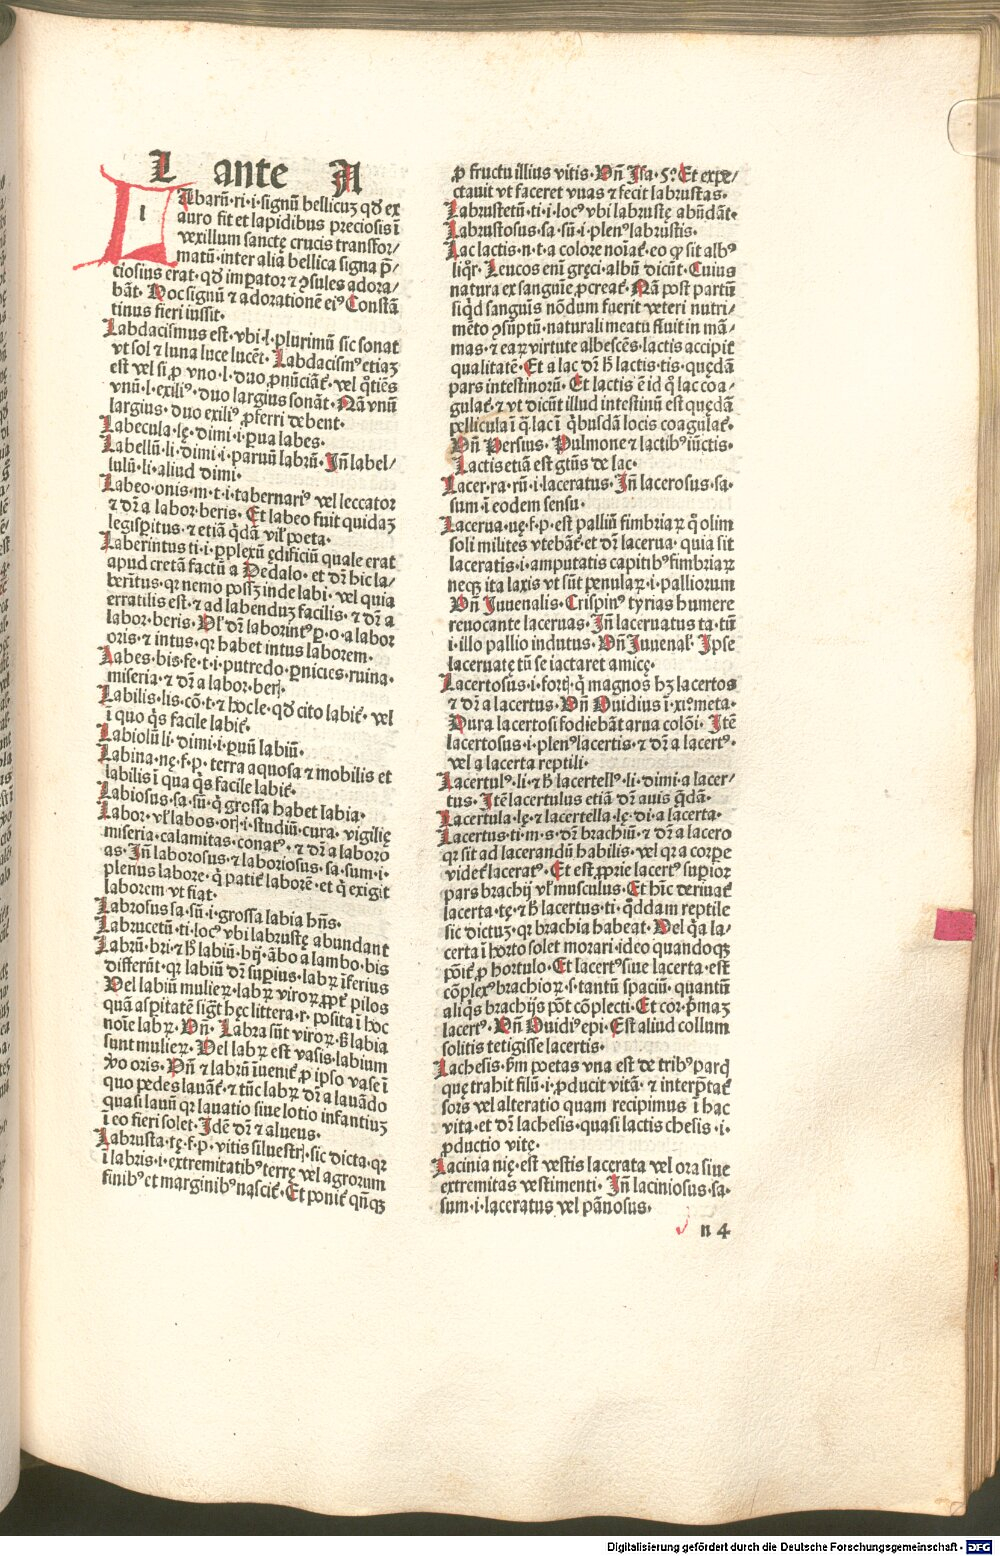 L ante A
Abarū·ri·i·signū bellicuꝫ qđ ex
auro fit et lapidibus preciosis ī
vexillum sanctę crucis transfor/
matū·inter aliā bellica signa p̄/
ciosius erat·qđ imꝑator ⁊ ꝯsules adora/
bāt·Hoc signū ⁊ adorationē eiꝰ Constā
tinus fieri iussit·
Labdacismus est·vbi·l·plurimū sic sonat
vt sol ⁊ luna luce lucēt·Labdacismꝰ etiaꝫ
est vel si ꝓ vno·l·duo ꝓnūciāt·vel q̄tiēs
vnū·l·exiliꝰ·duo largius sonāt·Nā vnū
largius·duo exiliꝰ ꝓferri debent·
Labecula·lę·dimi·i·ꝑua labes·
Labellū·li·dimi·i·paruū labrū·Jn̄ label/
lulū·li·aliud dimi·
Labeo·onis·m·t·i·tabernariꝰ vel leccator
⁊ dr̄ a labor·beris·Et labeo fuit quidaꝫ
legisꝑitus·⁊ etiā q̄dā vil̓ poeta·
Laberintus ti·i·ꝑplexū ędificiū quale erat
apud cretā factū a Dedalo·et dr̄ hic la/
berītus·qꝛ nemo possꝫ inde labi·vel quia
erratilis est·⁊ ad labenduꝫ facilis·⁊ dr̄ a
labor·beris·Vl̓ dr̄ laborintꝰ ꝑ·o·a labor
oris·⁊ intus·qꝛ habet intus laborem·
Labes·bis·fe·t·i·putredo·ꝑnicies·ruina·
miseria·⁊ dr̄ a labor·berꝭ·
Labilis·lis·cō·t·⁊ hocle·qđ cito labit̄·vel
ī quo q̄s facile labit̄·
Labiolū li·dimi·i·ꝑuū labiū·
Labina·nę·f·p·terra aquosa ⁊ mobilis et
labilis ī qua q̄s facile labit̄·
Labiosus·sa·sū·q̄ grossa habet labia·
Labor·vl̓ labos·orꝭ·i·studiū·cura·vigilię
miseria·calamitas·conatꝰ·⁊ dr̄ a laboro
as·Jn̄ laborosus·⁊ laboriosus·sa·sum·i·
plenus labore·q̄ patit̄ laborē·et q̄ exigit
laborem vt fiat·
Labrosus sa·sū·i·grossa labia hn̄s·
Labrucetū·ti·locꝰ vbi labrustę abundant
Labrū·bri·⁊ h̄ labiū·bij·ābo a lambo·bis
differūt·qꝛ labiū dr̄ suꝑius·labꝝ īferius
Vel labiū mulieꝝ·labꝝ viroꝝ ꝓpt̓ pilos
quā asꝑitatē sigt̄ hęc littera·r·posita ī hoc
noīe labꝝ·Vn̄·Labra sūt viroꝝ·sꝫ labia
sunt mulieꝝ·Vel labꝝ est vasis·labium
ꝟo oris·Vn̄ ⁊ labrū iuenit̄ ꝓ ipso vase ī
quo pedes lauāt̄·⁊ tūc labꝝ dr̄ a lauādo
quasi lauꝝ qꝛ lauatio siue lotio infantiuꝫ
ī eo fieri solet·Jdē dr̄ ⁊ alueus·
Labrusta·tę·f·p·vitis siluestrꝭ·sic dicta·qꝛ
ī labris·i·extremitatibꝰ terrę vel agrorum
finibꝰ et marginibꝰ nascit̄·Et ponit̄ qn̄qꝫ
ꝓ fructu illius vitis·Vn̄ Jsa·5º·Et expe/
ctauit vt faceret vuas ⁊ fecit labrustas·
Labrustetū·ti·i·locꝰ vbi labrustę abūdāt·
Labrustosus·sa·sū·i·plenꝰ labrustis·
Lac lactis·n·t·a colore noīat̄·eo ꝙ sit albꝰ
liq̄r·Leucos eni̅ gręci albū dicūt·Cuius
natura ex sanguīe ꝓcreat̄·Nā post partū
siq̄d sanguīs nōdum fuerit veteri nutri/
mēto ꝯsūptū·naturali meatu fluit in mā/
mas·⁊ eaꝝ virtute albescēs·lactis accipit
qualitatē·Et a lac dr̄ h̄ lactis·tis·quędā
pars intestinorū·Et lactis ē id q̄ lac coa/
gulat̄·⁊ vt dicūt illud intestinū est quędā
pellicula ī q̄ lac ī q̄busdā locis coagulat̄·
Vn̄ Persius·Pulmone ⁊ lactibꝰ iūctis·
Lactis etiā est gtūs de lac·
Lacer·ra·rū·i·laceratus·Jn̄ lacerosus·sa·
sum ī eodem sensu·
Lacerua·uę·f·p·est palliū fimbriaꝝ q̄ olim
soli milites vtebāt̄·et dr̄ lacerua·quia sit
laceratis·i·amputatis capitibꝰ fimbriaꝝ
neqꝫ ita laxis vt sūt penulaꝝ·i·palliorum
Vn̄ Juuenalis·Crispinꝰ tyrias humere
reuocante laceruas·Jn̄ laceruatus ta·tū
·i·illo pallio indutus·Vn̄ Juuenal̓·Jpse
laceruatę tū se iactaret amicę·
Lacertosus·i·fortꝭ·q̄ magnos hꝫ lacertos
⁊ dr̄ a lacertus·Vn̄ Ouidius ī·xiº·meta·
Dura lacertosi fodiebāt arua colōi·Jtē
lacertosus·i·plenꝰ lacertis·⁊ dr̄ a lacertꝰ·
vel a lacerta reptili·
Lacertulꝰ·li·⁊ h̄ lacertellꝰ·li·dimi·a lacer/
tus·Jtē lacertulus etiā dr̄ auis q̄dā·
Lacertula·lę·⁊ lacertella·lę·di·a lacerta·
Lacertus·ti·m·s·dr̄ brachiū·⁊ dr̄ a lacero
qꝛ sit ad lacerandū habilis·vel qꝛ a corꝑe
videt̄ laceratꝰ·Et est ꝓprie lacertꝰ suꝑior
pars brachij vl̓ musculus·Et hīc deriuat̄
lacerta·tę·⁊ h̄ lacertus·ti·q̄ddam reptile
sic dictuꝫ·qꝛ brachia habeat·Vel q̄a la/
certa ī horto solet morari·ideo quandoqꝫ
pōit̄ ꝓ hortulo·Et lacertꝰ siue lacerta·est
cōplexꝰ brachioꝝ·s·tantū spaciū·quantū
aliq̄s brachijs pōt cōplecti·Et cor·ꝑmaꝫ
lacertꝰ·Vn̄ Ouidiꝰ epi·Est aliud collum
solitis tetigisse lacertis·
Lachesis·ẜm poetas vna est de tribꝰ parꝗ
quę trahit filū·i·ꝓducit vitā·⁊ interp̄tat̄
sors vel alteratio quam recipimus ī hac
vita·et dr̄ lachesis·quasi lactis chesis·i·
ꝓductio vitę·
Lacinia nię·est vestis lacerata vel ora siue
extremitas vestimenti·Jn̄ laciniosus·sa·
sum·i·laceratus vel pānosus·
n 4
Digitalisierung gefördert durch die Deutsche Forschungsgemeinschaft - DFG